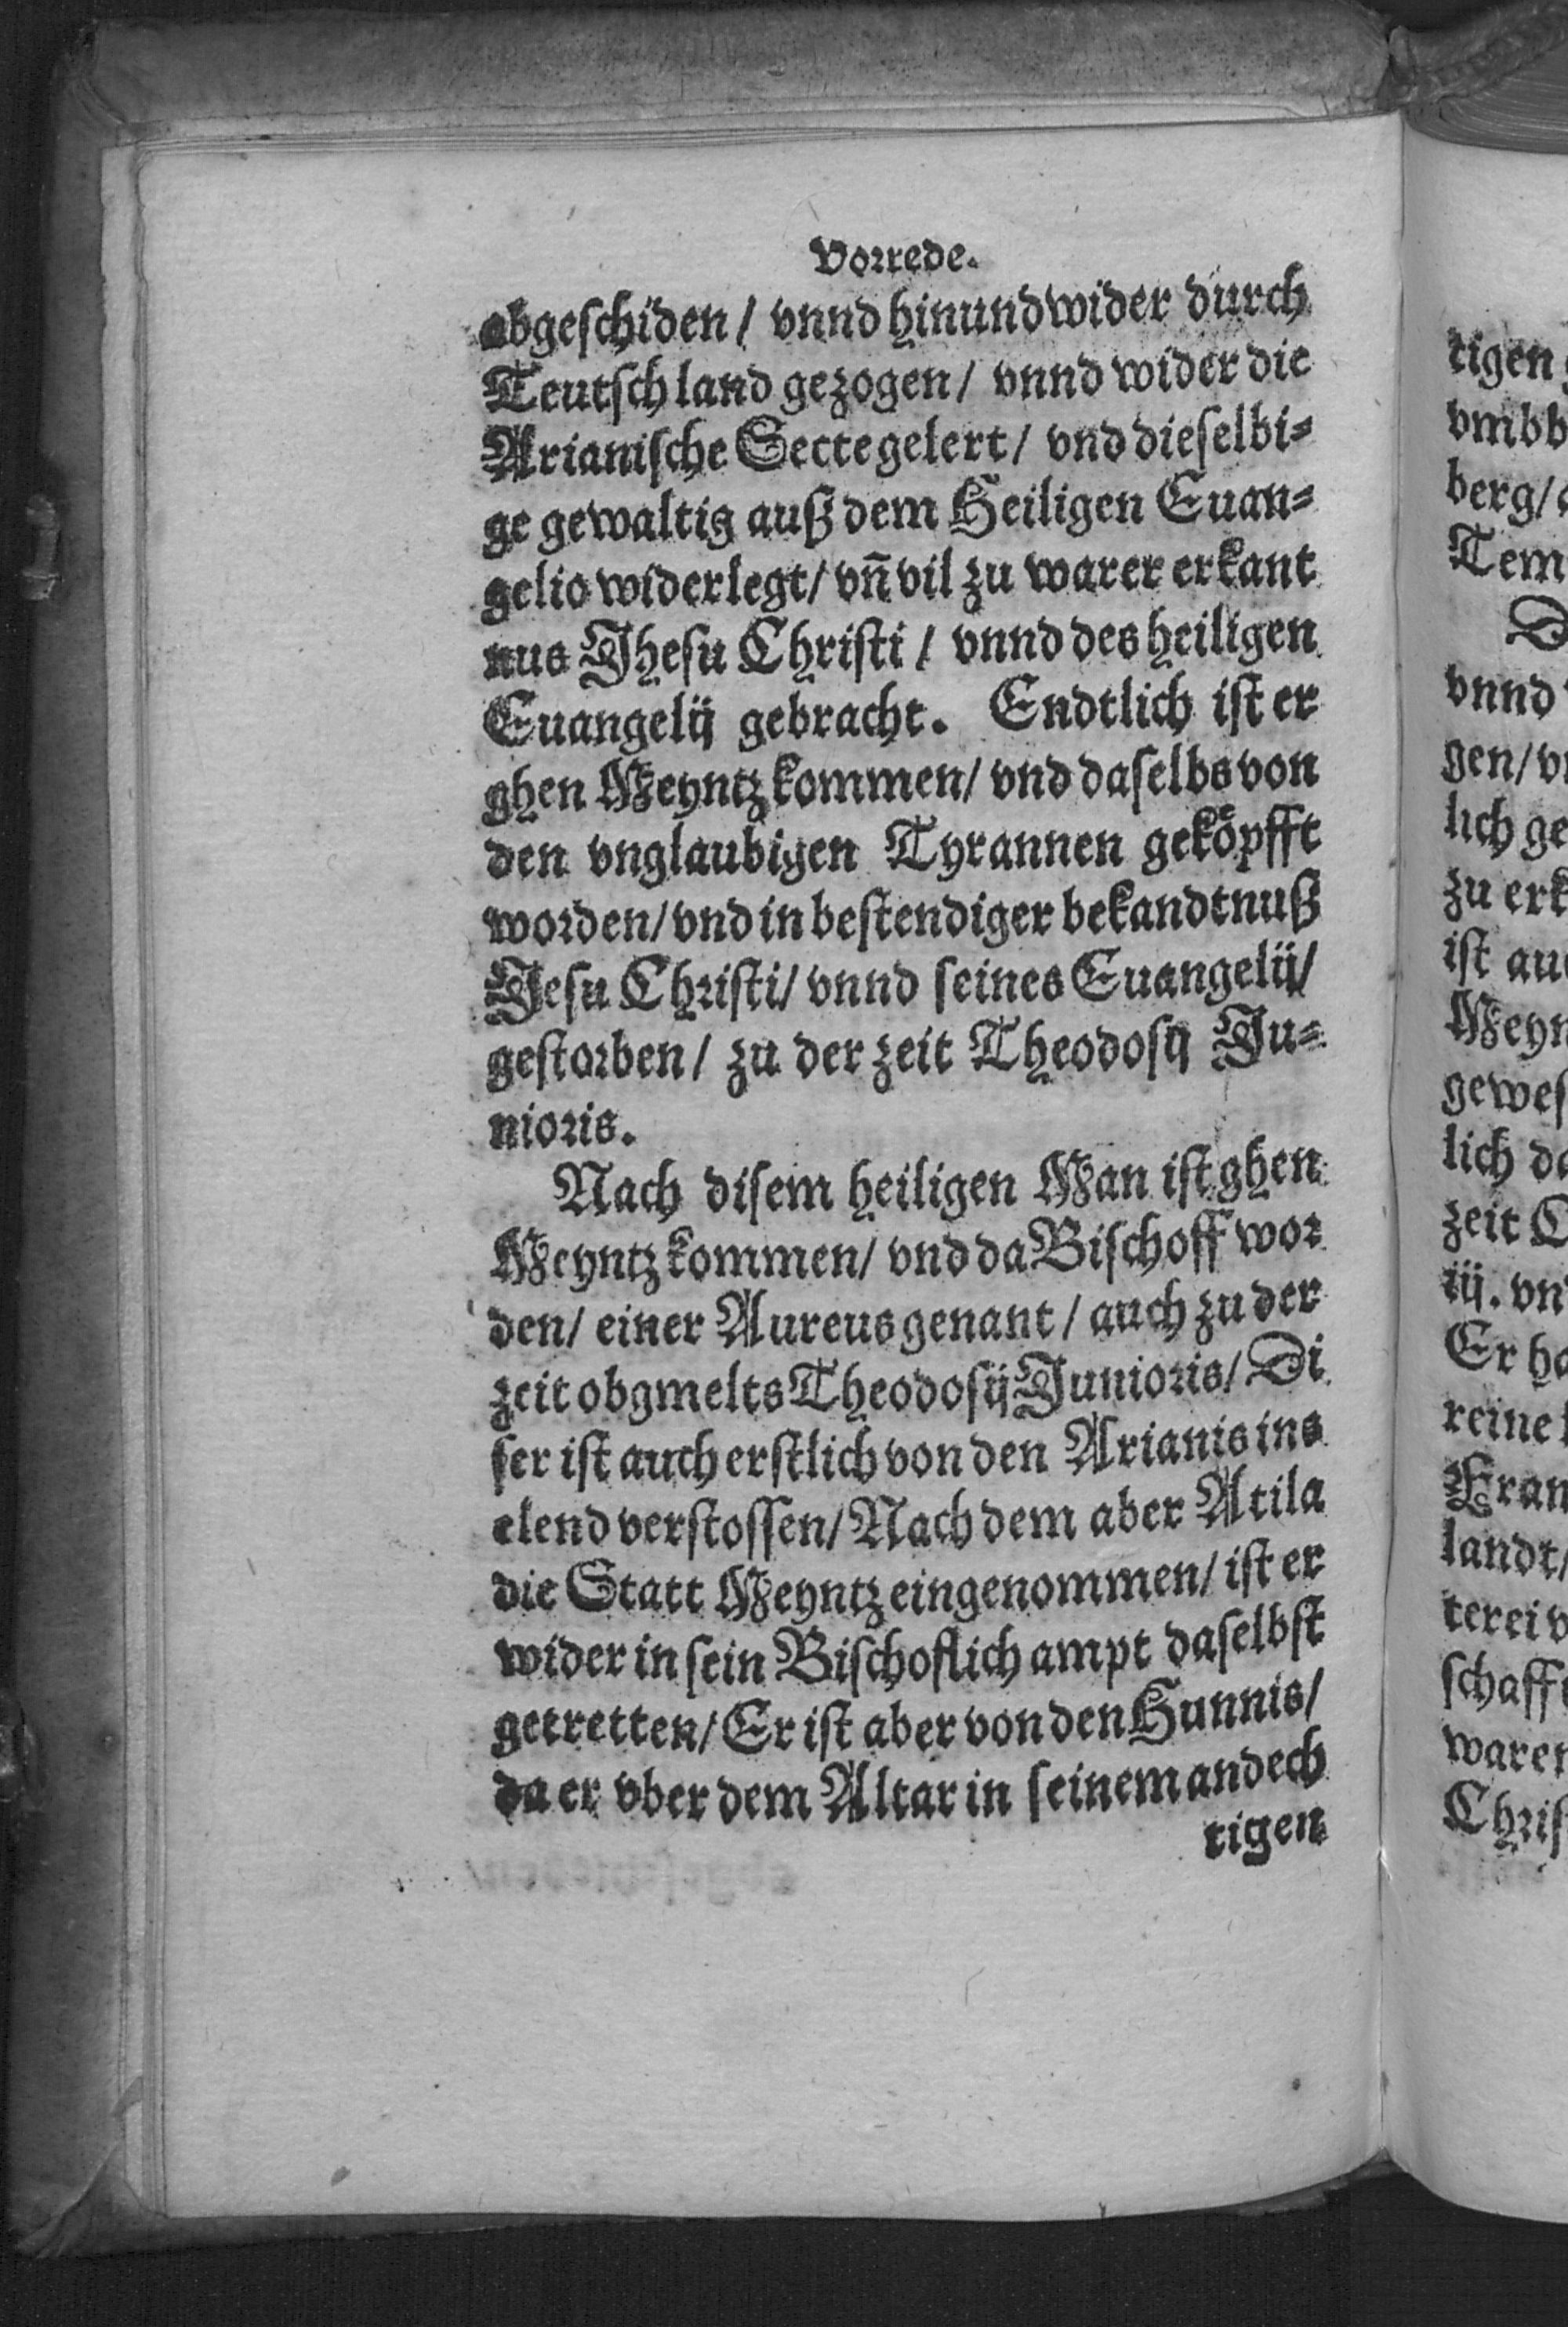 Vorrede.
abgeschiden / vnnd hinundwider durch
Teutschland gezogen / vnnd wider die
Arianische Secte gelert / vnd dieselbi⸗
ge gewaltig auß dem Heiligen Euan⸗
gelio widerlegt / vn̄ vil zu warer erkant
nus Jhesu Christi / vnnd des heiligen
Euangelij gebracht. Endtlich ist er
ghen Meyntz kommen / vnd daselbs von
den vnglaubigen Tyrannen gekoͤpfft
worden / vnd in bestendiger bekandtnuß
Jesu Christi / vnnd seines Euangelij /
gestorben / zu der zeit Theodosij Ju⸗
nioris.
Nach disem heiligen Man ist ghen
Meyntz kommen / vnd da Bischoff wor
den / einer Aureus genant / auch zu der
zeit obgmelts Theodosij Junioris / Di
ser ist auch erstlich von den Arianis ins
elend verstossen / Nach dem aber Atila
die Statt Meyntz eingenommen / ist er
wider in sein Bischoflich ampt daselbst
getretten / Er ist aber von den Hunnis /
da er vber dem Altar in seinem andech
tigen
tigen
vmbb
berg /
Tem
D
vnnd
gen / v
lich ge
zu erk
ist au
Meyn
gewes
lich da
zeit C
iij. vn
Er ha
reine
Fran
landt /
terei v
schaff
waren
Chris